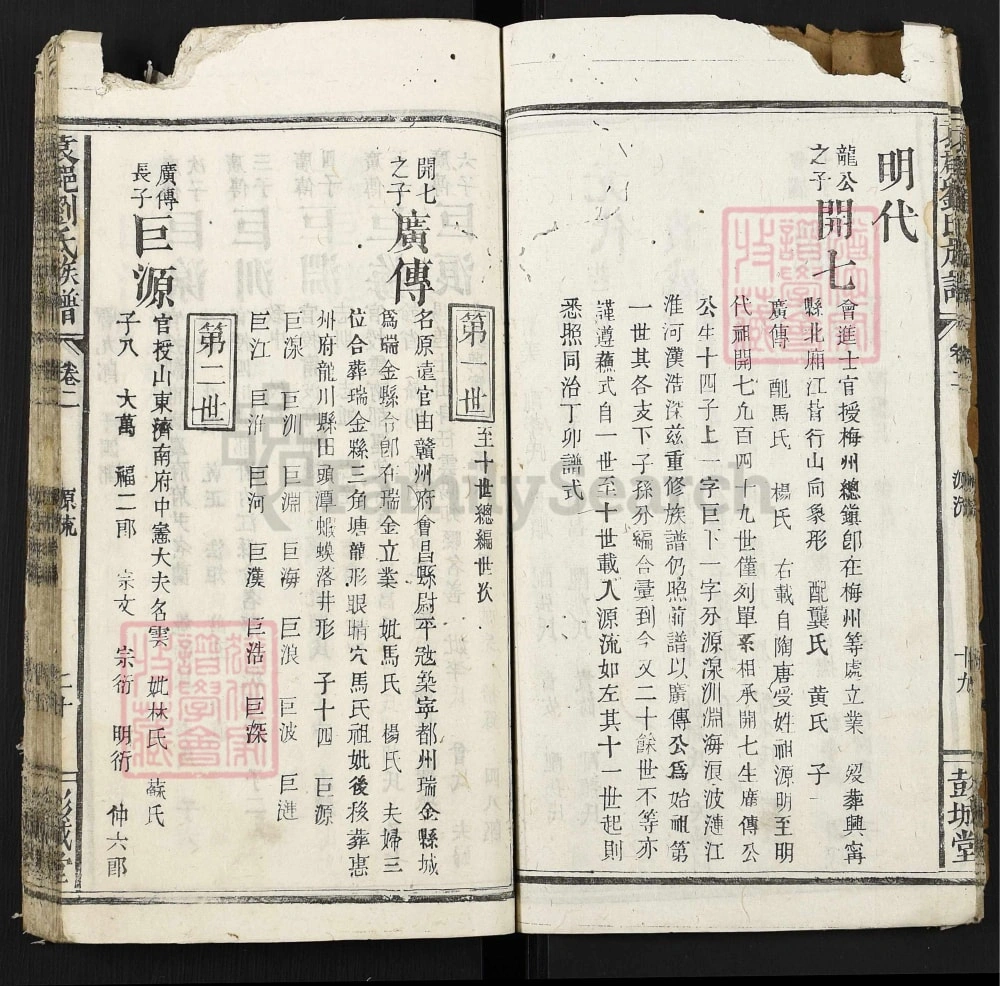 明代
龍公之子 開七
會進士官授梅州總鎮卽在梅州等處立業 歿葬興甯
縣北廂江背行山向象形 配龔氏 黃氏 子
廣傳 配馬氏 楊氏 右載自陶唐受姓祖源明至明
代祖開七凡百四十九世僅列單系相承開七生廣傳公
公生十四子上一字巨下一字分源湶洲淵海浪波漣江
淮河漢浩深兹重修族譜仍照前譜以廣傳公爲始祖第
一世其各支下子孫分編合彙到今又二十餘世不等亦
謹遵蘸式自一世至十世載入源流如左其十一世起則
悉照同治丁卯譜式
源流
十九
彭城堂
第一世
至十世總編世次
開七之子 廣傳
名原薳官由贛州府會昌縣尉平冦築寧都州瑞金縣城
爲瑞金縣令卽在瑞金立業 妣馬氏 楊氏 夫婦三
位合葬瑞金縣三角塘龍形眼睛穴馬氏祖妣後移葬惠
州府龍川縣田頭潭蝦蟆落井形 子十四 巨源
巨湶 巨洲 巨淵 巨海 巨浪 巨波 巨漣
巨江 巨淮 巨河 巨漢 巨浩 巨深
第二世
廣傳長子 巨源
官授山東濟南府中憲大夫名雲 妣林氏 蘇氏
子八 大萬 福二郎 宗文 宗衍 明衍 仲六郎
劉氏族譜
卷二
源流
二十
彭城堂
FamilySearch